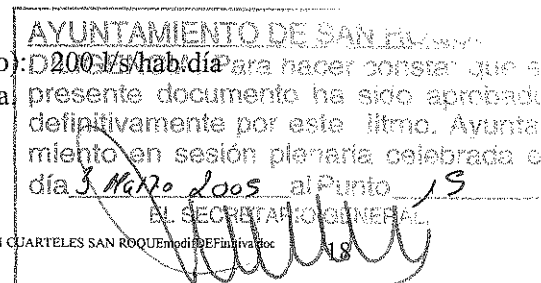 AYUNTAMIENTO DE SAN
o): 200 l/s/hab.día
Para hacer constar que e
a. presente documento ha sido aprobado
definitivamente por este Iltmo. Ayunta
miento en sesión plenaria celebrada e
día 3 Marzo 2005 al Punto 15
EL SECRETARIO GENERAL,
N CUARTELES SAN ROQUEmodifDEFinitiva.doc 18